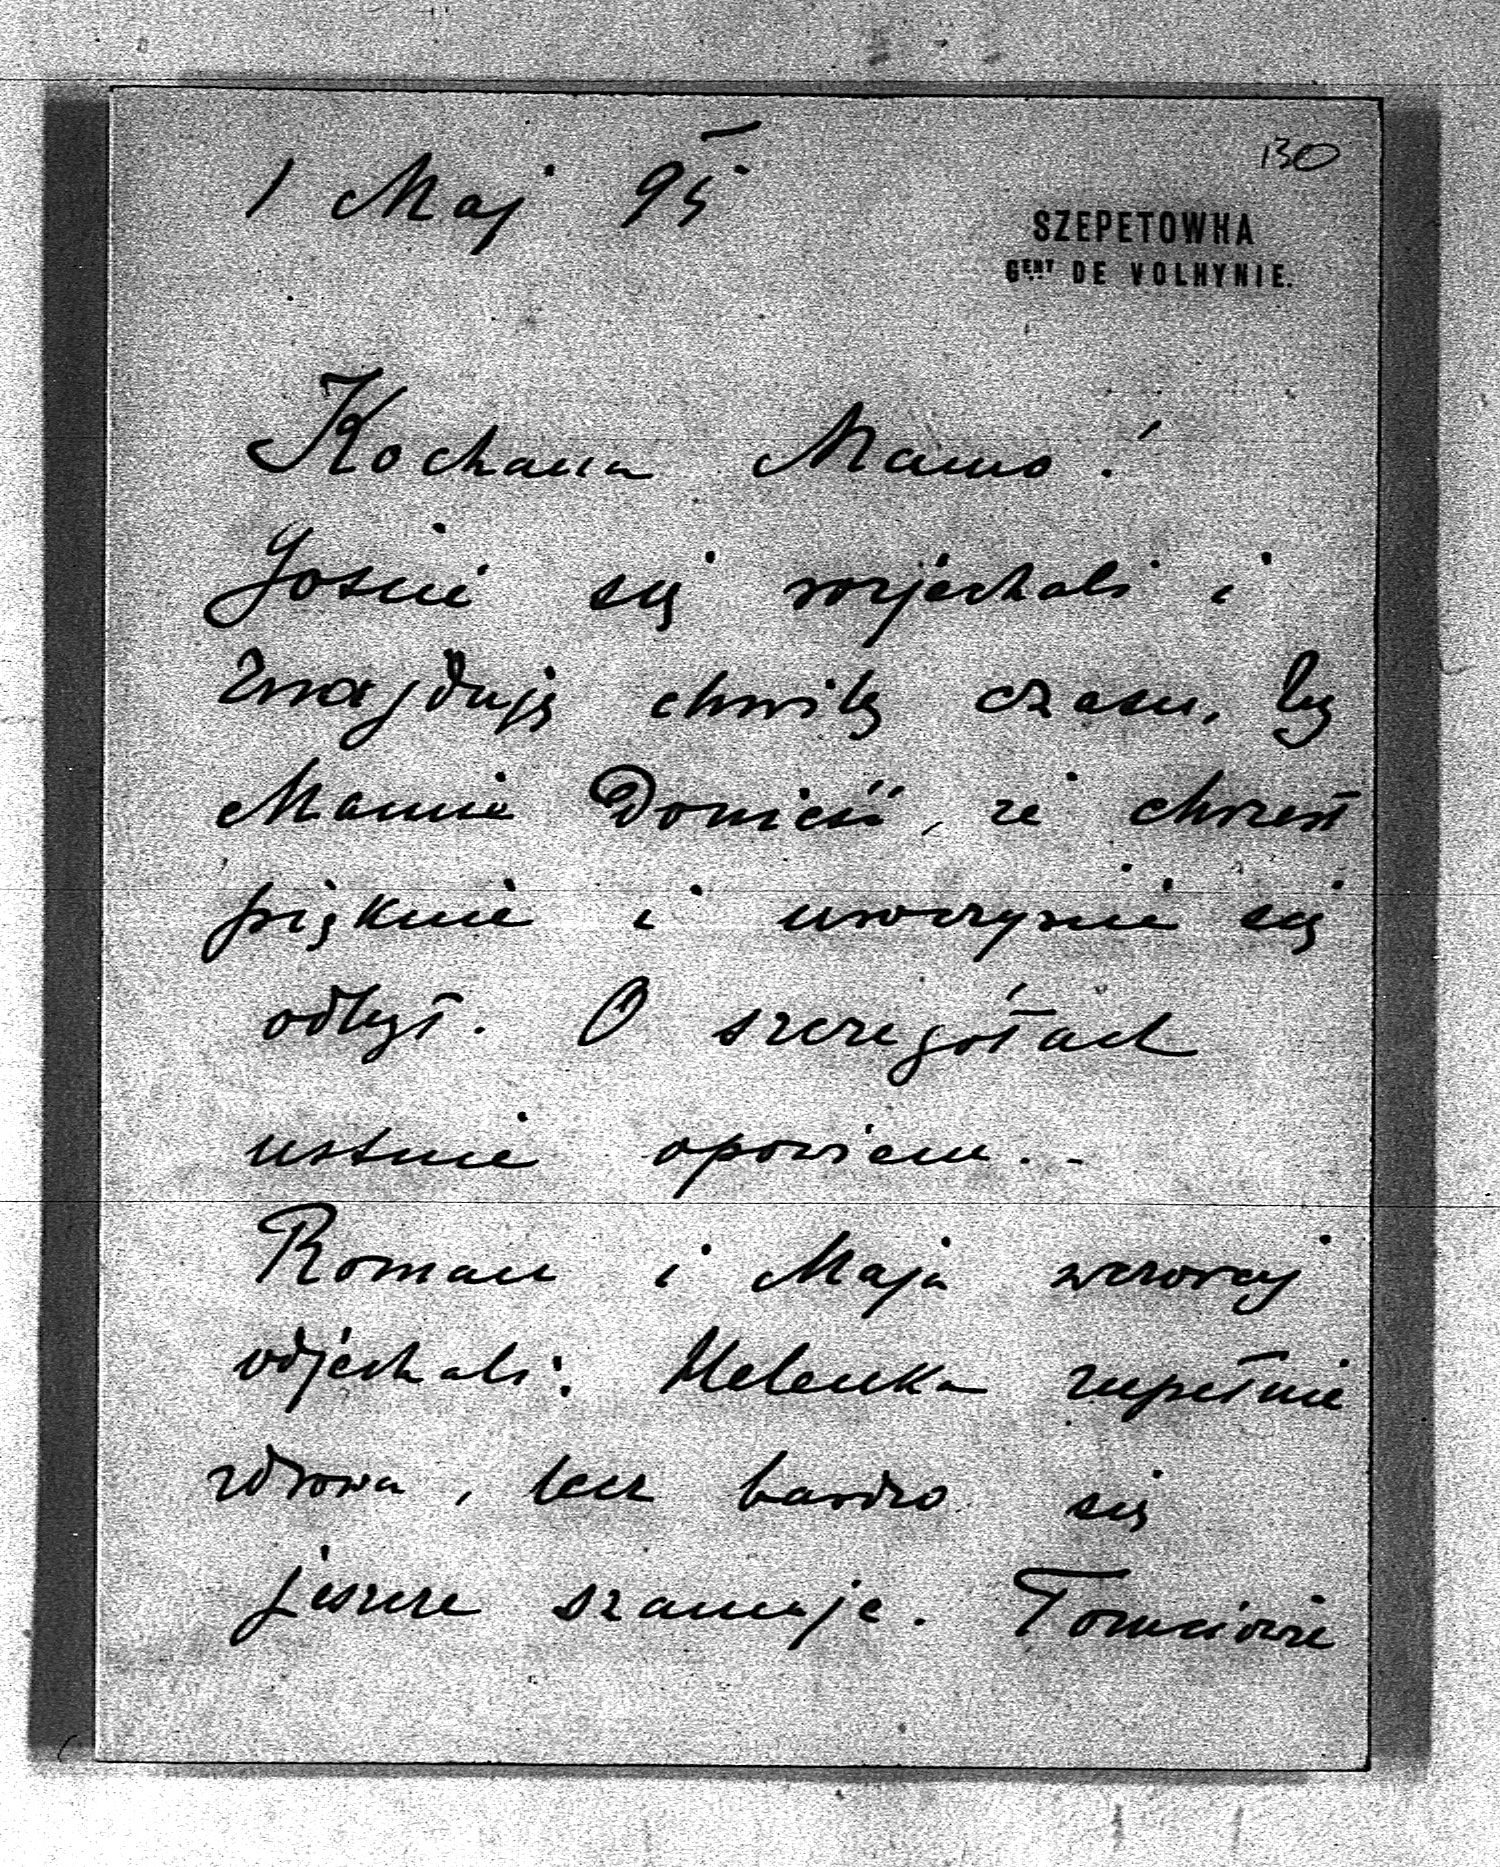 130
1 Maj 95.
SZEPETOWKA
GENT DE VOLHYNIE.
Kochana Mamo!
Goście się rozjechali i
znajduję chwilę czasu, by
Mamie donieść, że chrzest
pięknie i uroczyście się
odbył. O szczegółach
ustnie opowiem..
Roman i Maja wczoraj
odjechali. Helenka zupełnie
zdrowa, lecz bardzo się
jeszcze szanuje. Tomciowie